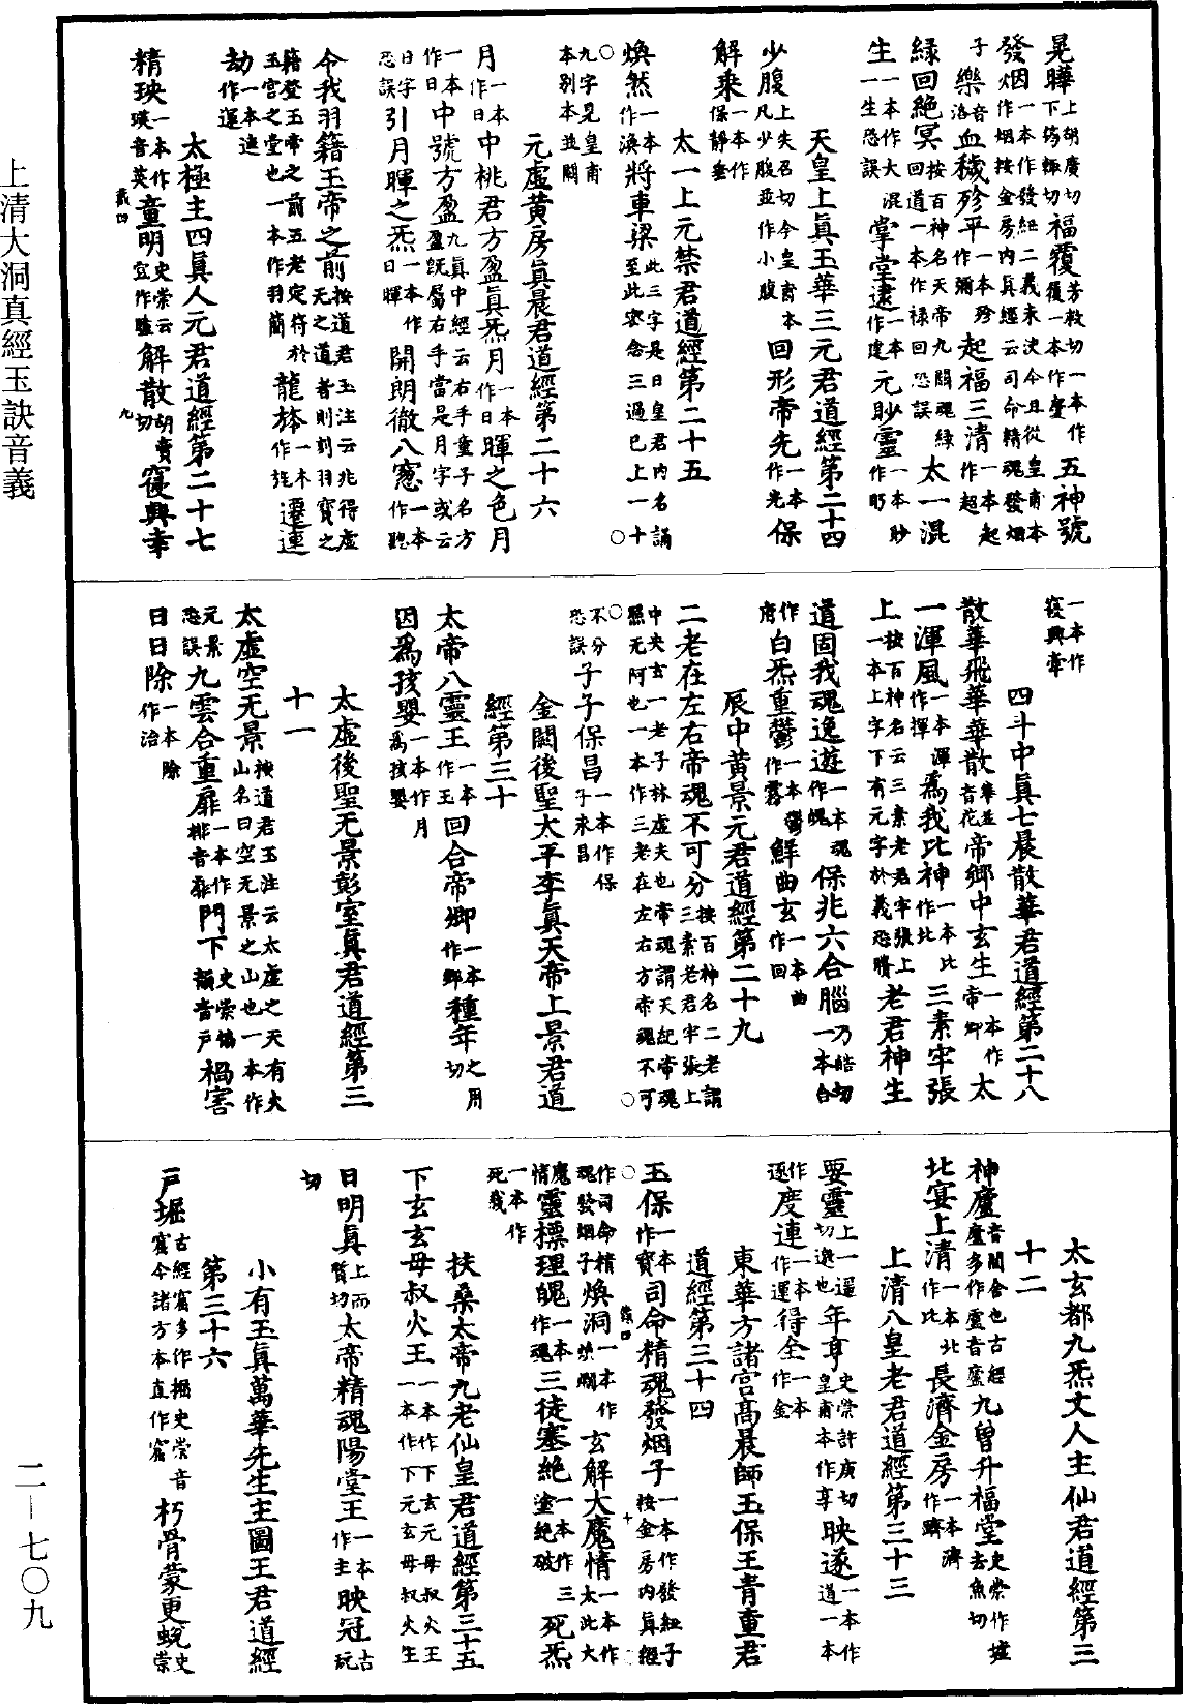 上清大洞真經玉訣音義
二—七〇九
晃曄上胡廣切下筠輒切福覆芳救切一本作覆一本作慶五神號
發烟一本作發紐二義未決今且從皇甫本作烟按金房內真經云司命精魂發烟
子樂音洛血穢殄平一本殄作彌起福三清一本起作超
緑回絶冥按百神名天帝九關魂緑回道一本作禄回恐誤太一混
生一本作大混一生恐誤掌堂逮一本作逮元眇靈一本眇作眄
天皇上真玉華三元君道經第二十四
少腹上失召切今皇甫本凡少腹並作小腹回形帝先一本作光保
解乘一本作保靜乗
太一上元禁君道經第二十五
煥然一本作渙將車梁此三字是日皇君內名誦至此密念三過已上一十
九字見皇甫本別本並闕
元虚黄房真晨君道經第二十六
月一本作日中桃君方盈真炁月一本作日暉之色月
一本作日中號方盈九真中經云右手童子名方盈旣屬右手當是月字或云
日字恐誤引月暉之炁一本作日暉開朗徹八窻一本作聰
今我羽籍玉帝之前按道君玉注云兆得虚无之道者則刻羽寶之
籍登玉帝之前五老定符於玉宫之堂也一本作羽簡龍旂一本作旌遷連
劫一本連作運
太極主四真人元君道經第二十七
精玦一本作瑛音英童明史崇云宜作瞳解散胡賣切寢興幸
一本作寢興幸
四斗中真七晨散華君道經第二十八
散華飛華華散華並音花帝鄉中玄生一本作帝卿太
一渾風一本渾作揮爲我比神一本比作此三素牢張
上按百神名云三素老君牢張上一本上字下有元字於義恐勝老君神生
道固我魂逸遊一本魂作魄保兆六合腦乃皓切一本白
作府白炁重鬱一本鬱作霧鮮曲玄一本曲作回
辰中黄景元君道經第二十九
二老在左右帝魂不可分按百神名二老謂三素老君牢張上
中央玄一老子林虚夫也帝魂謂天紀帝魂照无阿也一本作三老在左右方帝魂不可
不分恐誤子子保昌一本作保子未昌
金闕後聖太平李真天帝上景君道
經第三十
太帝八靈王一本作玉回合帝卿一本作鄉種年之用切
因爲孩嬰一本作月爲孩嬰
太虚後聖无景彭室真君道經第三
十一
太虚空无景按道君玉注云太虚之天有大山名曰空无景之山也一本作
元景恐誤九雲合重扉一本作排音菲門下史崇協韻音戸禍害
日日除一本除作治
太玄都九炁丈人主仙君道經第三
十二
神廬音閭舍也古經廬多作盧音廬九曾升福堂史崇作墟去魚切
北宴上清一本北作比長濟金房一本濟作躋
上清八皇老君道經第三十三
要靈上一邀切邀也年亨史崇許庚切皇甫本作享映遂一本作道一本
作逐度連一本作運得全一本作金
東華方諸宫高晨師玉保王青童君
道經第三十四
玉保一本作寶司命精魂發烟子一本作發紐子按金房內真經
作司命精魂發烟子煥洞一本作煥爛玄解大魔情一本作太此大
魔情靈標理魄一本作魂三徒塞絶一本作三塗絶破死炁
一本作死我
扶桑太帝九老仙皇君道經第三十五
下玄玄母叔火王一本作下玄元母叔火王一本作下元玄母叔火生
日明真上而質切太帝精魂陽堂王一本作主映冠古玩
切
小有玉真萬華先生主圖玉君道經
第三十六
戸堀古經窟多作掘史崇音窟今諸方本直作窟朽骨蒙更蛻史崇